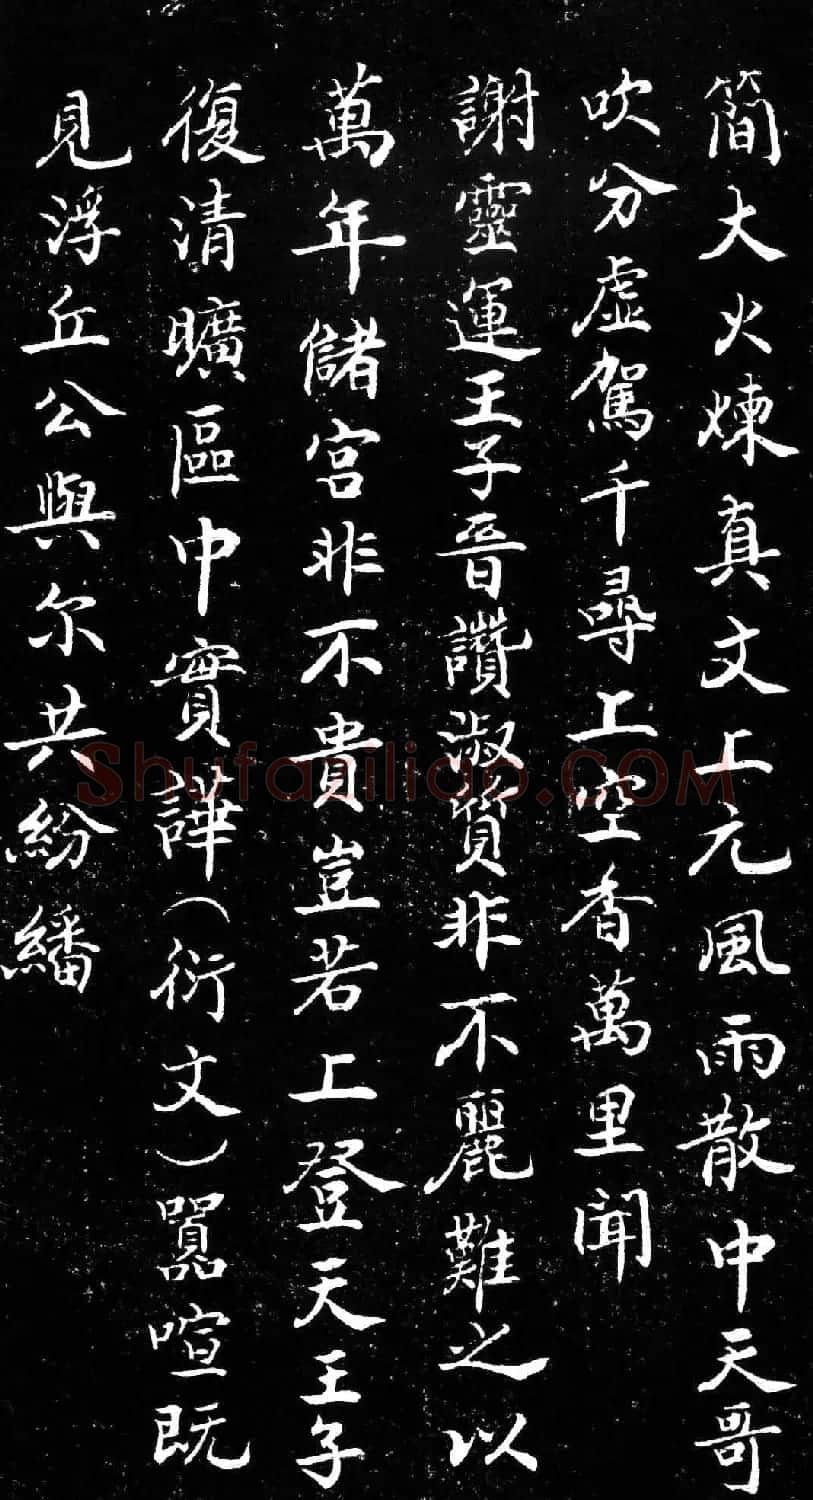 簡大火煉真文上元風雨散中天哥
吹分虛駕千尋上空香萬里聞
謝靈運王子晉讚淑質非不麗難之以
萬年儲宮非不貴豈若上登天王子
復清曠區中實譁（衍文）囂喧既
見浮丘公與尔共紛繙
Shufaziliao.COM